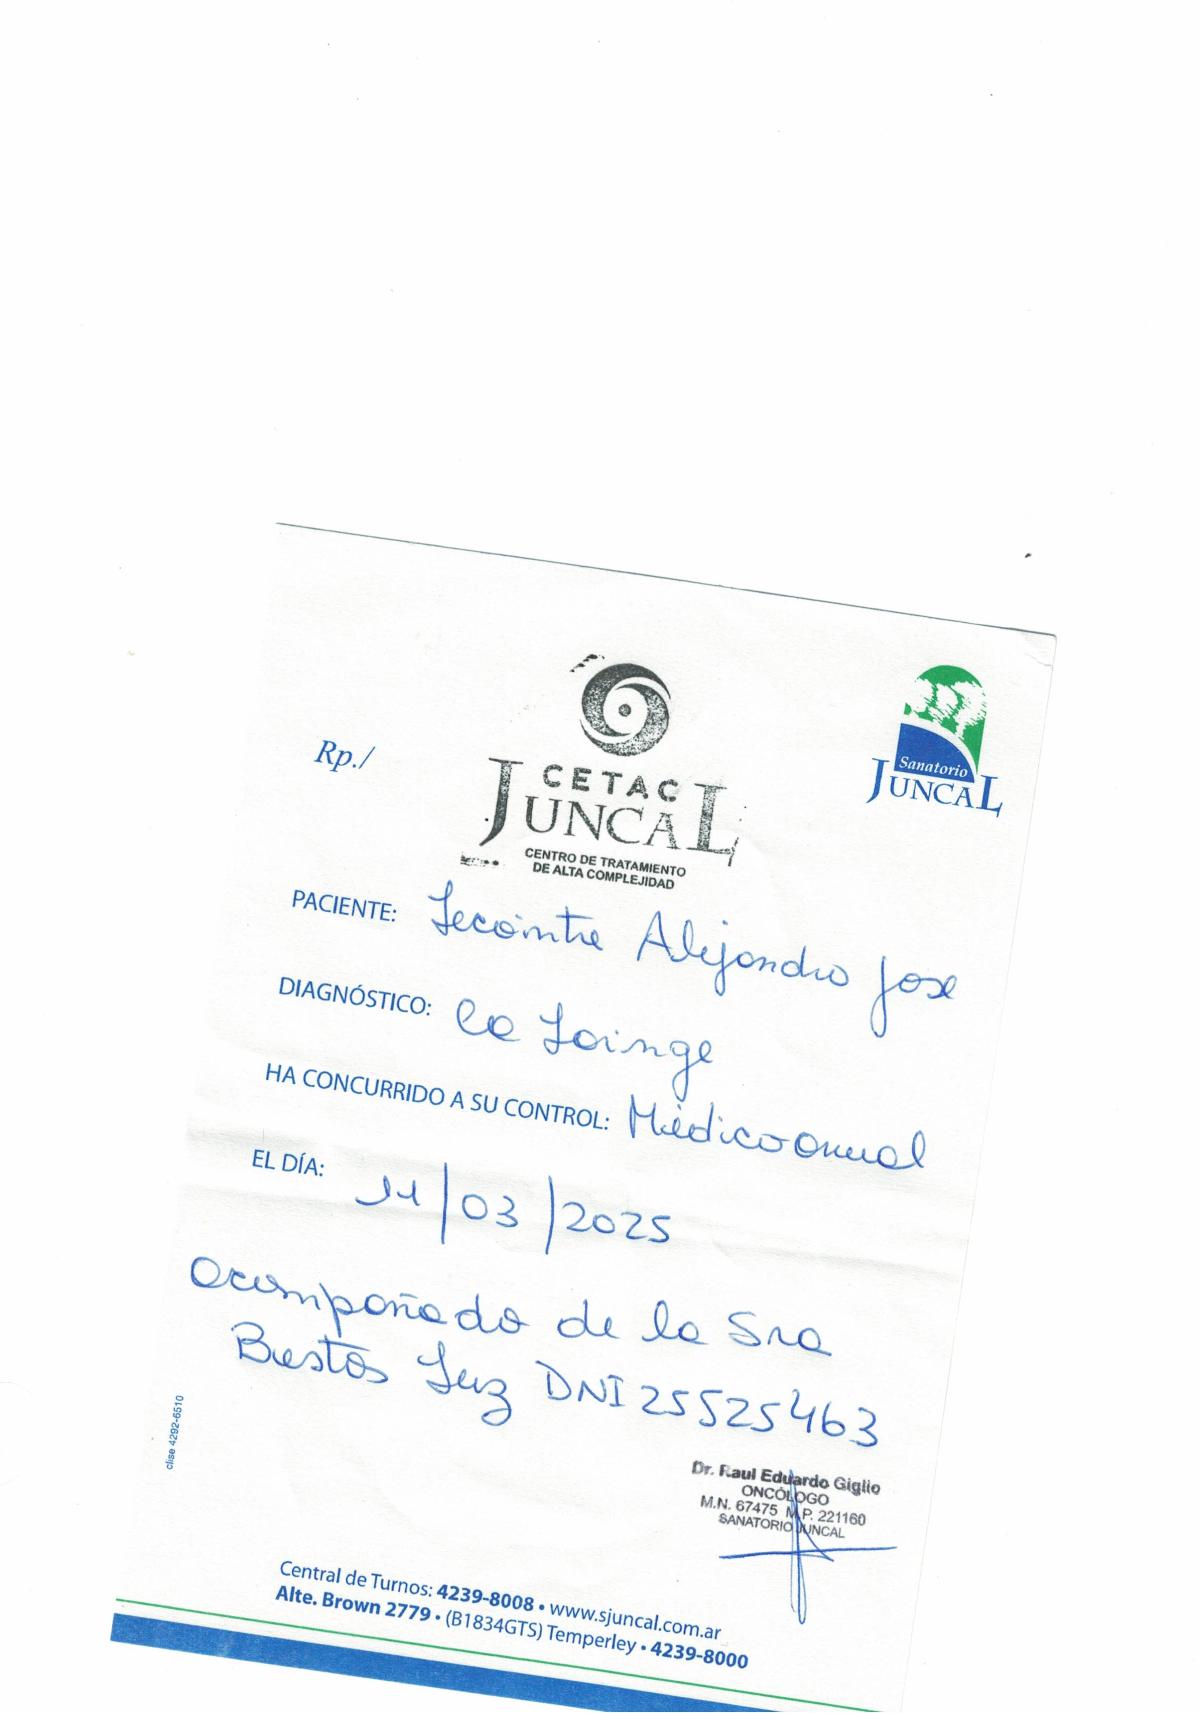 Rp./
CETAC
JUNCAL
CENTRO DE TRATAMIENTO
DE ALTA COMPLEJIDAD
Sanatorio
JUNCAL
PACIENTE: Lecointre Alejandro Jose
DIAGNÓSTICO: Ca Laringe
HA CONCURRIDO A SU CONTROL: Médico anual
EL DÍA: 11/03/2025
acompañado de la Sra
Bustos Luz DNI 25525463
clise 4292-6510
Dr. Raul Eduardo Giglio
ONCÓLOGO
M.N. 67475 M.P. 221160
SANATORIO JUNCAL
Central de Turnos: 4239-8008 • www.sjuncal.com.ar
Alte. Brown 2779 • (B1834GTS) Temperley • 4239-8000